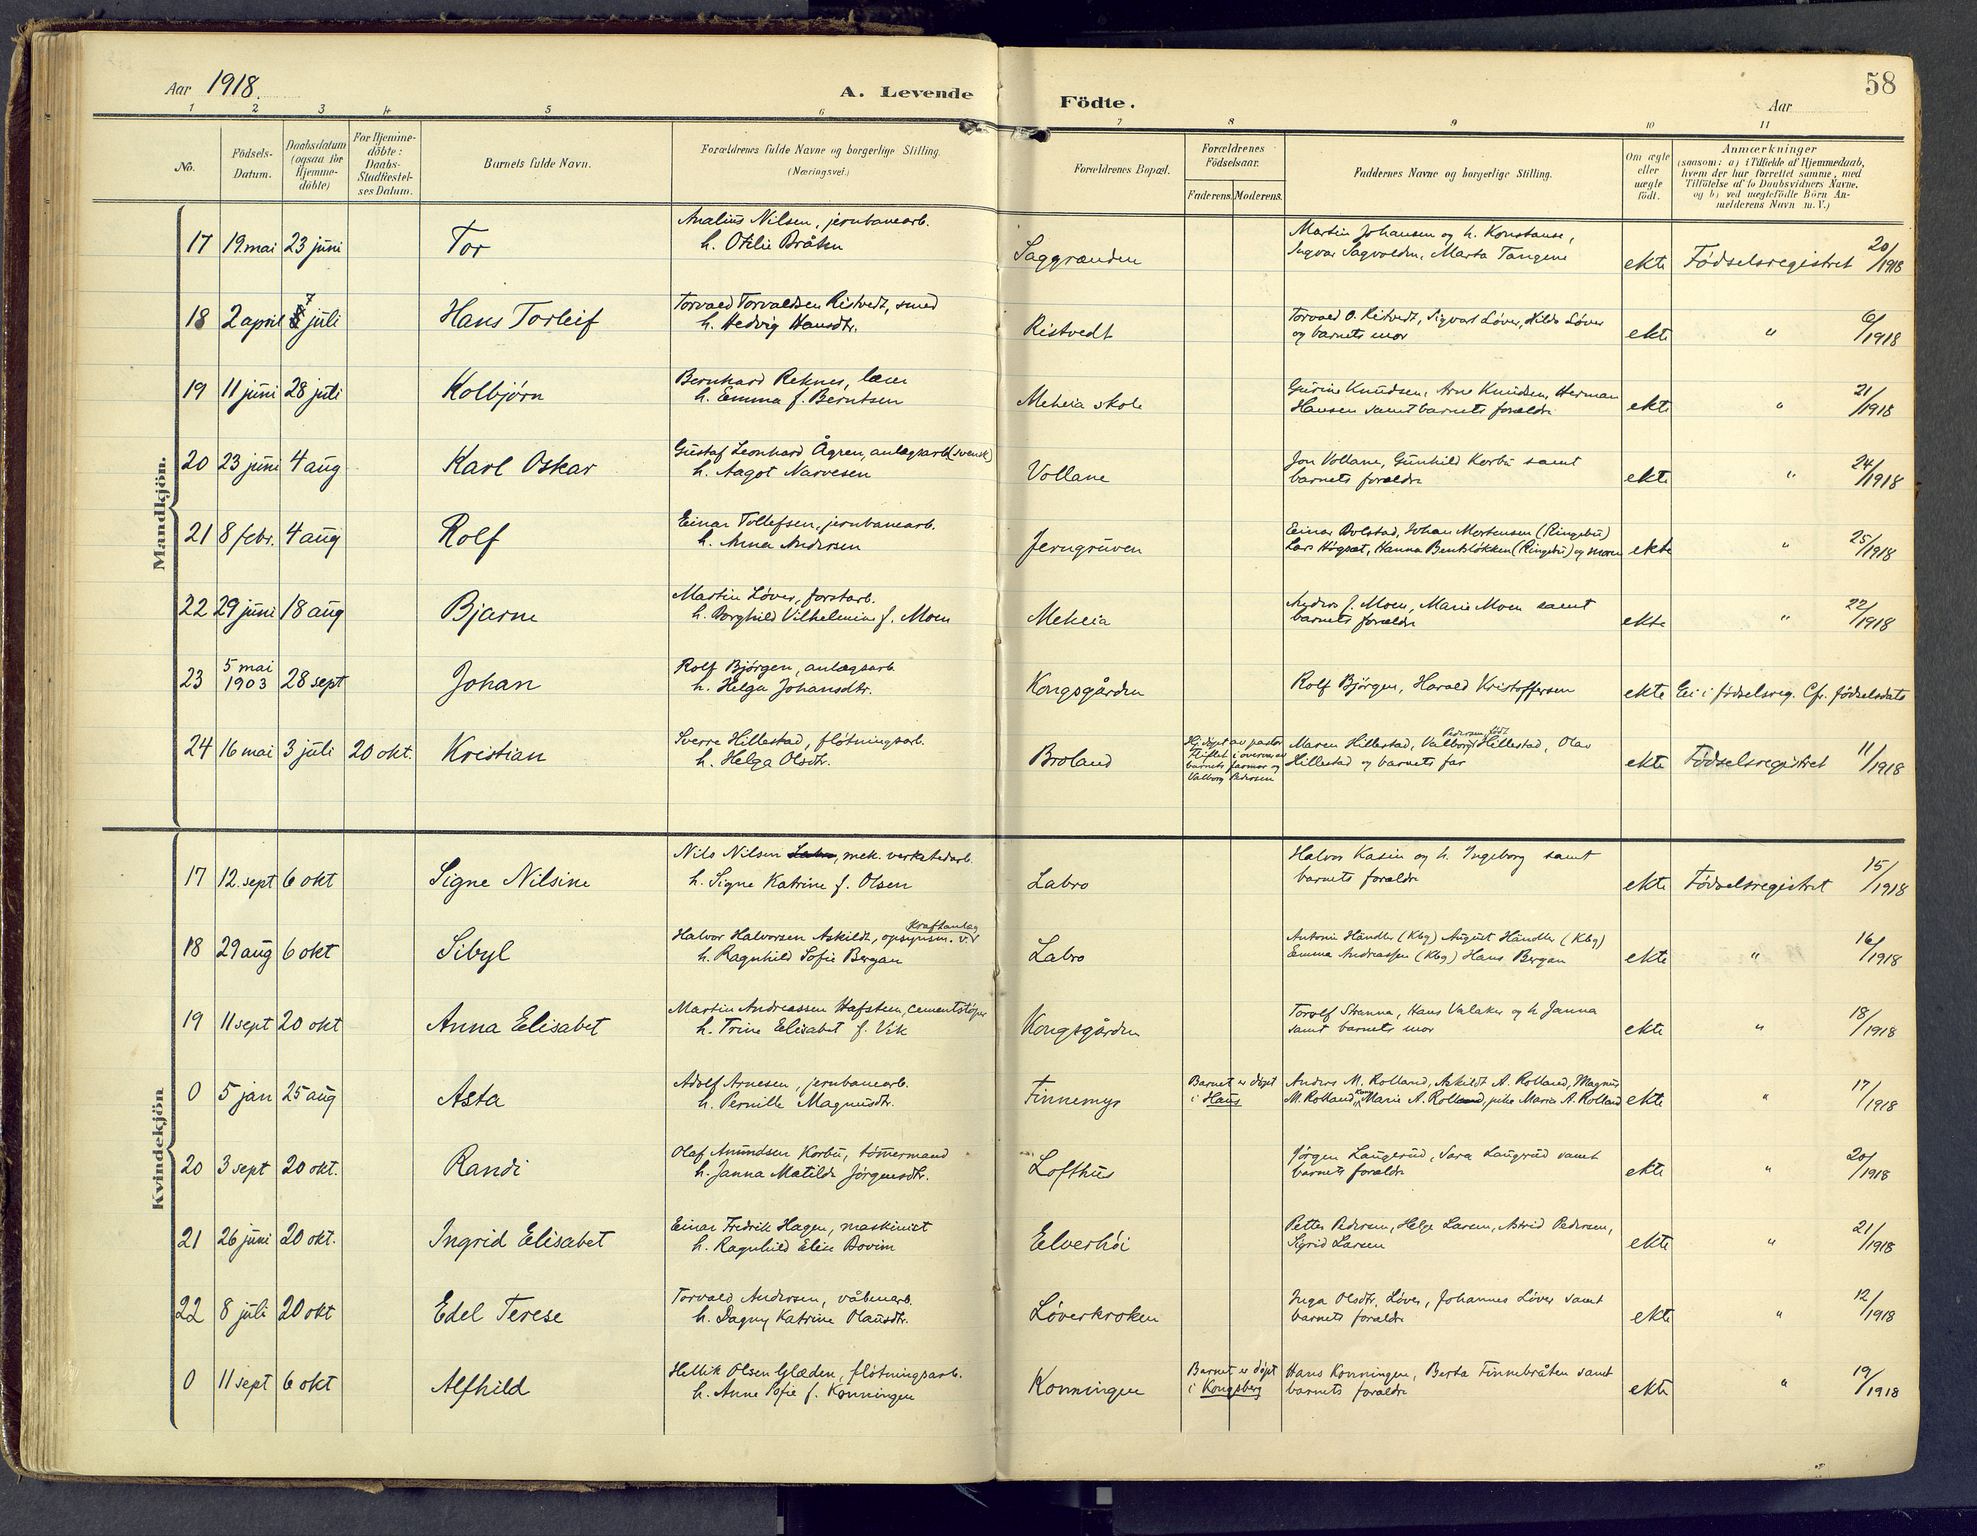 Aar 1918.
A. Levende Födte.
Aar
58
1 2 3 4 5 6 7 8 9 10 11
No.
Födsels-
Datum.
Daabsdatum
(ogsaa for
Hjemme-
döbte)
For Hjemme-
döbte:
Daabs-
Stadfæstel-
ses Datum.
Barnets fulde Navn.
Forældrenes fulde Navne og borgerlige Stilling.
(Næringsvei.)
Forældrenes Bopæl.
Forældrenes
Födselsaar.
Faderens. Moderens.
Faddernes Navne og borgerlige Stilling.
Om ægte
eller
uægte
født.
Anmærkninger
(saasom: a) i Tilfælde af Hjemmedaab,
hvem der har forrettet samme, med
Tilföielse af to Daabsvidners Navne,
og b) ved uægtefödte Börn An-
melderens Navn m. V.)
Mandkjön.
17 19. mai 23 juni Tor
Analius Nilsen, jernbanearb.
h. Otilie Bråten
Saggrænden
Martin Johansen og h. Konstanse,
Ingvar Sagvolden, Marta Tangene
ekte Fødselsregistret 20/1918
18 2 april 7 juli Hans Torleif
Torvald Torvaldsen Ristvedt, smed
h. Hedvig Hansdtr.
Ristvedt
Torvald O. Ristvedt, Sigvart Løver, Hilda Løver
og barnets mor
ekte " 6/1918
19 11 juni 28 juli Kolbjørn
Bernhard Reknes, lærer
h. Emma f. Berntsen
Meheia skole
Gurine Knudsen, Arne Knudsen, Herman
Hansen samt barnets forældre
ekte " 21/1918
20 23 juni 4 aug Karl Oskar
Gustaf Leonhard Ågren, anlægsarb. (svensk)
h. Aagot Narvesen
Vollane
Jon Vollane, Gunhild Korbu samt
barnets forældre
ekte " 24/1918
21 8 febr. 4 aug Rolf
Einar Tollefsen, jernbanearb.
h. Anna Andersen
Jerngruven
Einar Bolstad, Johan Mortensen (Ringebu)
Lars Høgsæt, Hanna Bentsløkken (Ringebu) og moren
ekte " 25/1918
22 29 juni 18 aug Bjarne
Martin Løver, forstarb.
h. Borghild Vilhelmine f. Moen
Meheia
Anders J. Moen, Marie Moen samt
barnets forældre
ekte " 22/1918
23 5 mai 1903 28 sept Johan
Rolf Bjørgen, anlægsarb.
h. Helga Johansdtr.
Kongsgården
Rolf Bjørgen, Harald Kristoffersen
ekte Ei i fødselsreg. Cfr. fødselsdato
24 16 mai 3 juli 20 okt. Kristian
Sverre Hillestad, fløtningsarb.
h. Helga Olsdtr.
Broland
Hj. døpt av pastor
Kiflet i overvær av
barnets farmor og
Valborg Pedersen
Maren Hillestad, Valborg Pedersen født Hillestad, Olav
Hillestad og barnets far
ekte Fødselsregistret 11/1918
Kvindekjön
17 12. sept 6 okt Signe Nilsine
Nils Nilsen Labro, mek. verkstedarb.
h. Signe Katrine f. Olsen
Labro
Halvor Kasin og h. Ingeborg samt
barnets forældre
ekte Fødselsregistret 15/1918
18 29 aug 6 okt Sibyl
Halvor Halvorsen Askildt, opsynsm. v. Kraftanlæg
h. Ragnhild Sofie Bergan
Labro
Antonie Händler (Kbg) August Händler (Kbg)
Emma Andreassen (Kbg) Hans Bergan
ekte " 16/1918
19 11 sept 20 okt Anna Elisabet
Martin Andreassen Hafsten, cementstøper
h. Trine Elisabet f. Vik
Kongsgården
Torolf Stranna, Hans Valaker og h. Janna
samt barnets mor
ekte " 18/1918
0 5 jan 25 aug Asta
Adolf Arnesen, jernbanearb.
h. Pernille Magnusdtr.
Finnemyr
Barnet er døpt
i Haus
Anders M. Rolland, Askildt A. Rolland, Magnus
M. Rolland, Marie A. Rolland, pike Marie A. Rolland
ekte " 17/1918
20 3 sept 20 okt. Randi
Olaf Amundsen Korbu, tømmermand
h. Janna Matilde Jørgensdtr.
Lofthus
Jørgen Laugerud, Sara Laugrud samt
barnets forældre
ekte " 20/1918
21 26 juni 20 okt. Ingrid Elisabet
Einar Fredrik Hagen, maskinist
h. Ragnhild Elise Bovim
Elverhøi
Petter Pedersen, Helge Larsen, Astrid Pedersen,
Sigrid Larsen
ekte " 21/1918
22 8 juli 20 okt Edel Terese
Torvald Andersen, våbenarb.
h. Dagny Katrine Olausdtr.
Løverkroken
Inga Olsdtr. Løver, Johannes Løver samt
barnets forældre
ekte " 12/1918
0 11 sept 6 okt Alfhild
Hellik Olsen Glæden, fløtningsarb.
h. Anne Sofie f. Konningen
Konningen
Barnet er døpt
i Kongsberg
Hans Konningen, Berta Finnebråten samt
barnets forældre
ekte " 19/1918